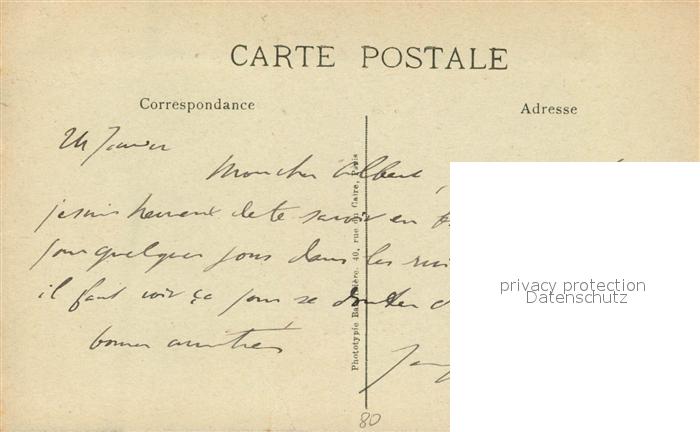 CARTE POSTALE
Correspondance
Adresse
24 Janvier
Mon cher Albert,
je suis heureux de te savoir en
pour quelques jours dans les
il faut voir ça pour se douter
bonnes amitiés
Phototypie Baudinière. 40, rue du Caire, Paris
80
privacy protection
Datenschutz